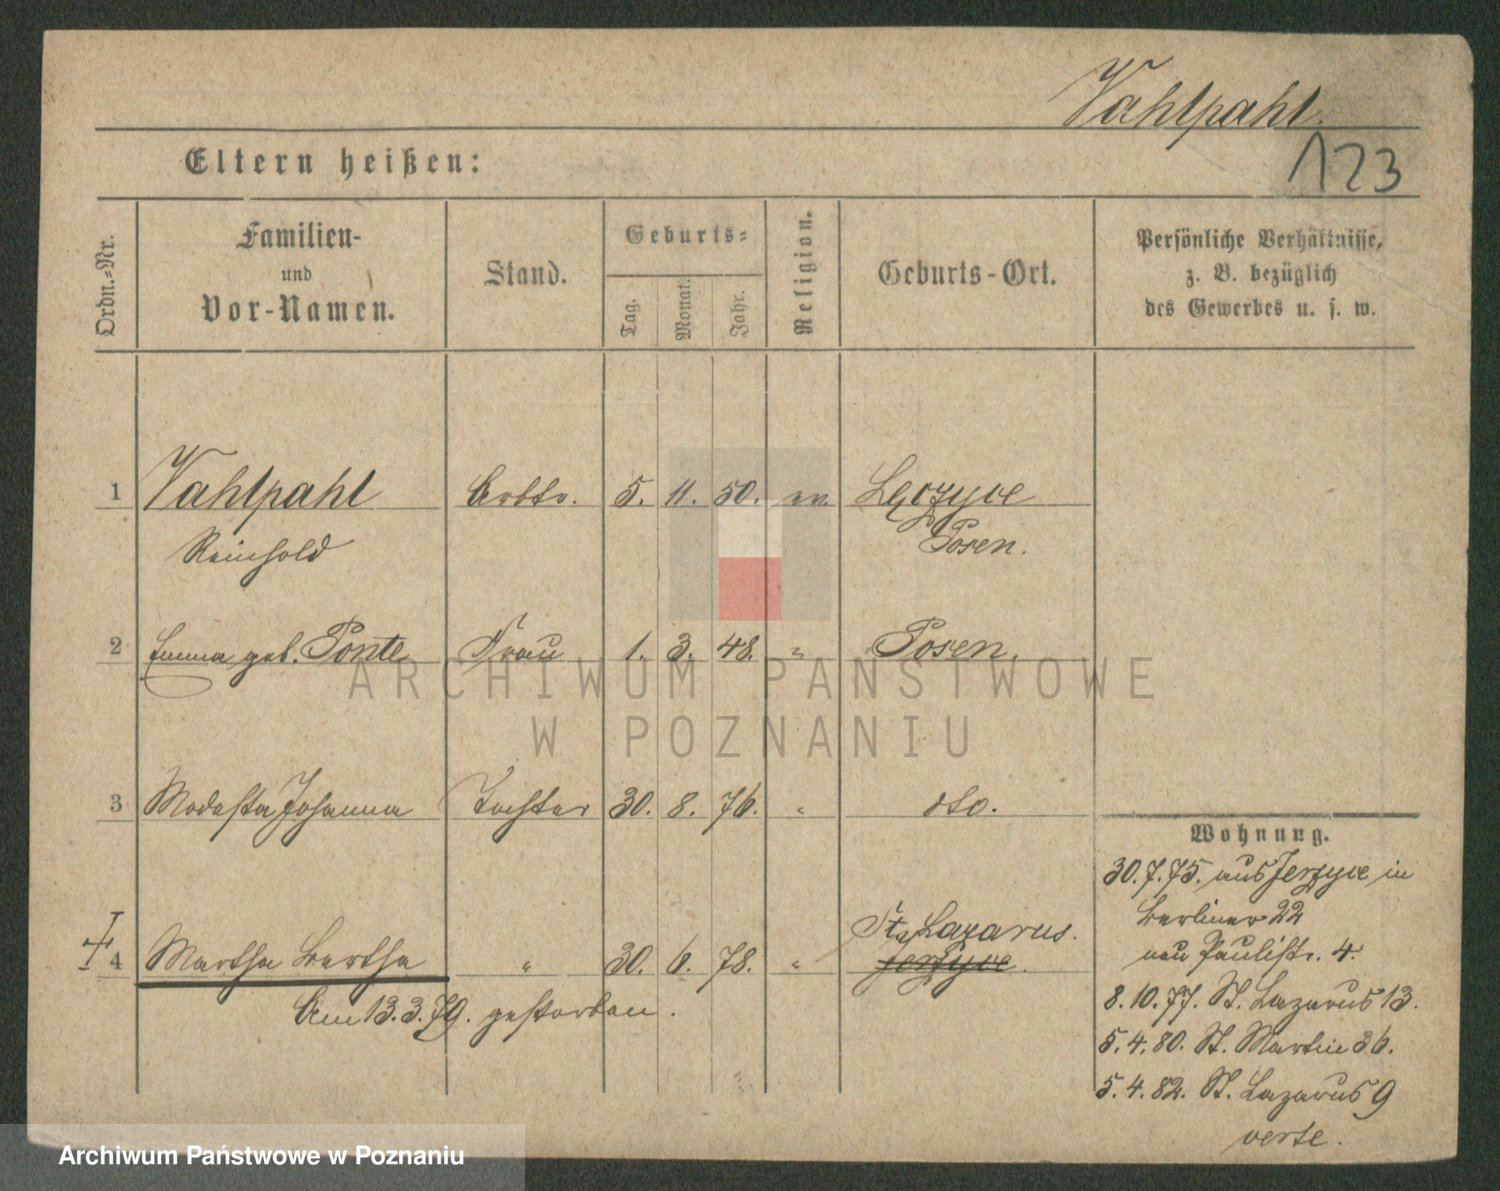 Vahlpahl.
Eltern heißen:
123
Ordn.-Nr.
Familien-
und
Vor-Namen.
Stand.
Geburts-
Tag.
Monat.
Jahr.
Religion.
Geburts-Ort.
Persönliche Verhältnisse,
z. B. bezüglich
des Gewerbes u. s. w.
1 Vahlpahl Arbtr. 5. 11. 50. ev.
Reinhold Posen.
2 Emma geb. Ponte Frau 1. 3. 48. " Posen.
3 Modesta Johanna Tochter 30. 8. 76. " dto.
St. Lazarus.
4 Martha Bertha " 30. 6. 78. " Jerzyce.
Am 13.3.79. gestorben.
Wohnung.
30.7.75. aus Jerzyce in
Berliner 22
neu Paulistr. 4.
8.10.77. St. Lazarus 13.
5.4.80. St. Martin 36.
5.4.82. St. Lazarus 9
verte.
ARCHIWUM PAŃSTWOWE
W POZNANIU
Archiwum Państwowe w Poznaniu